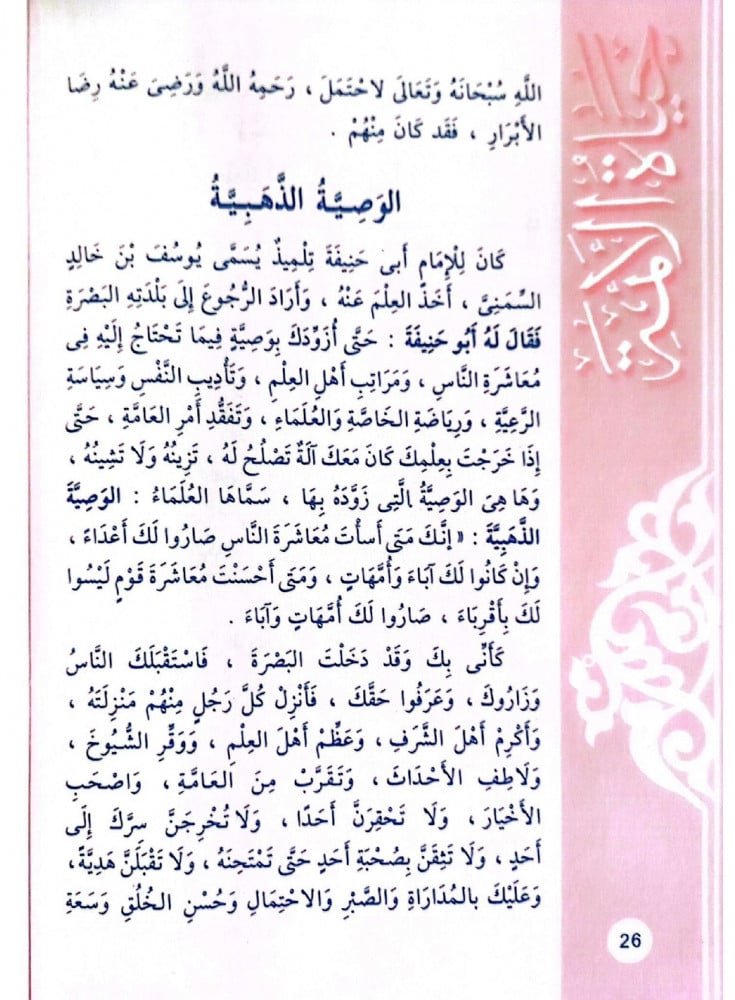 حياة الأئمة
اللَّهِ سُبْحَانَهُ وَتَعَالَى لاحْتَمَلَ ، رَحِمَهُ اللَّهُ وَرَضِىَ عَنْهُ رِضَا
الأَبْرَارِ ، فَقَد كَانَ مِنْهُمْ .
الوَصِيَّةُ الذَّهَبِيَّةُ
كَانَ لِلْإِمَامِ أَبِى حَنِيفَةَ تِلْمِيذٌ يُسَمَّى يُوسُفَ بْنَ خَالِدٍ
السِّمَنِىَّ ، أَخَذَ العِلْمَ عَنْهُ ، وَأَرَادَ الرُّجُوعَ إِلَى بَلْدَتِهِ البَصْرَةِ
فَقَالَ لَهُ أَبُو حَنِيفَةَ : حَتَّى أُزَوِّدَكَ بِوَصِيَّةٍ فِيمَا تَحْتَاجُ إِلَيْهِ فِى
مُعَاشَرَةِ النَّاسِ ، وَمَرَاتِبِ أَهْلِ العِلْمِ ، وَتَأْدِيبِ النَّفْسِ وَسِيَاسَةِ
الرَّعِيَّةِ ، وَرِيَاضَةِ الخَاصَّةِ وَالعُلَمَاءِ ، وَتَفَقُّدِ أَمْرِ العَامَّةِ ، حَتَّى
إِذَا خَرَجْتَ بِعِلْمِكَ كَانَ مَعَكَ آلَةٌ تَصْلُحُ لَهُ ، تَزِينُهُ وَلَا تَشِينُهُ ،
وَهَا هِىَ الوَصِيَّةُ الَّتِى زَوَّدَهُ بِهَا ، سَمَّاهَا العُلَمَاءُ : الوَصِيَّةَ
الذَّهَبِيَّةَ : « إنَّكَ مَتَى أَسأْتَ مُعَاشَرَةَ النَّاسِ صَارُوا لَكَ أَعْدَاءً ،
وَإِنْ كَانُوا لَكَ آبَاءَ وَأُمَّهَاتٍ ، وَمَتَى أَحْسَنْتَ مُعَاشَرَةَ قَوْمٍ لَيْسُوا
لَكَ بِأَقْرِبَاءَ ، صَارُوا لَكَ أُمَّهَاتٍ وَآبَاءَ .
كَأَنِّى بِكَ وَقَدْ دَخَلْتَ البَصْرَةَ ، فَاسْتَقْبَلَكَ النَّاسُ
وَزَارُوكَ ، وَعَرَفُوا حَقَّكَ ، فَأَنْزِلْ كُلَّ رَجُلٍ مِنْهُمْ مَنْزِلَتَهُ ،
وَأَكْرِمْ أَهْلَ الشَّرَفِ ، وَعَظِّمْ أَهْلَ العِلْمِ ، وَوَقِّرِ الشُّيُوخَ ،
وَلَاطِفِ الأَحْدَاثَ ، وَتَقَرَّبْ مِنَ العَامَّةِ ، وَاصْحَبِ
الأَخْيَارَ ، وَلَا تَحْقِرَنَّ أَحَدًا ، وَلَا تُخْرِجَنَّ سِرَّكَ إِلَى
أَحَدٍ ، وَلَا تَثِقَنَّ بِصُحْبَةِ أَحَدٍ حَتَّى تَمْتَحِنَهُ ، وَلَا تَقْبَلَنَّ هَدِيَّةً ،
وَعَلَيْكَ بالمُدَارَاةِ وَالصَّبْرِ وَالاحْتِمَالِ وَحُسْنِ الخُلُقِ وَسَعَةِ
26